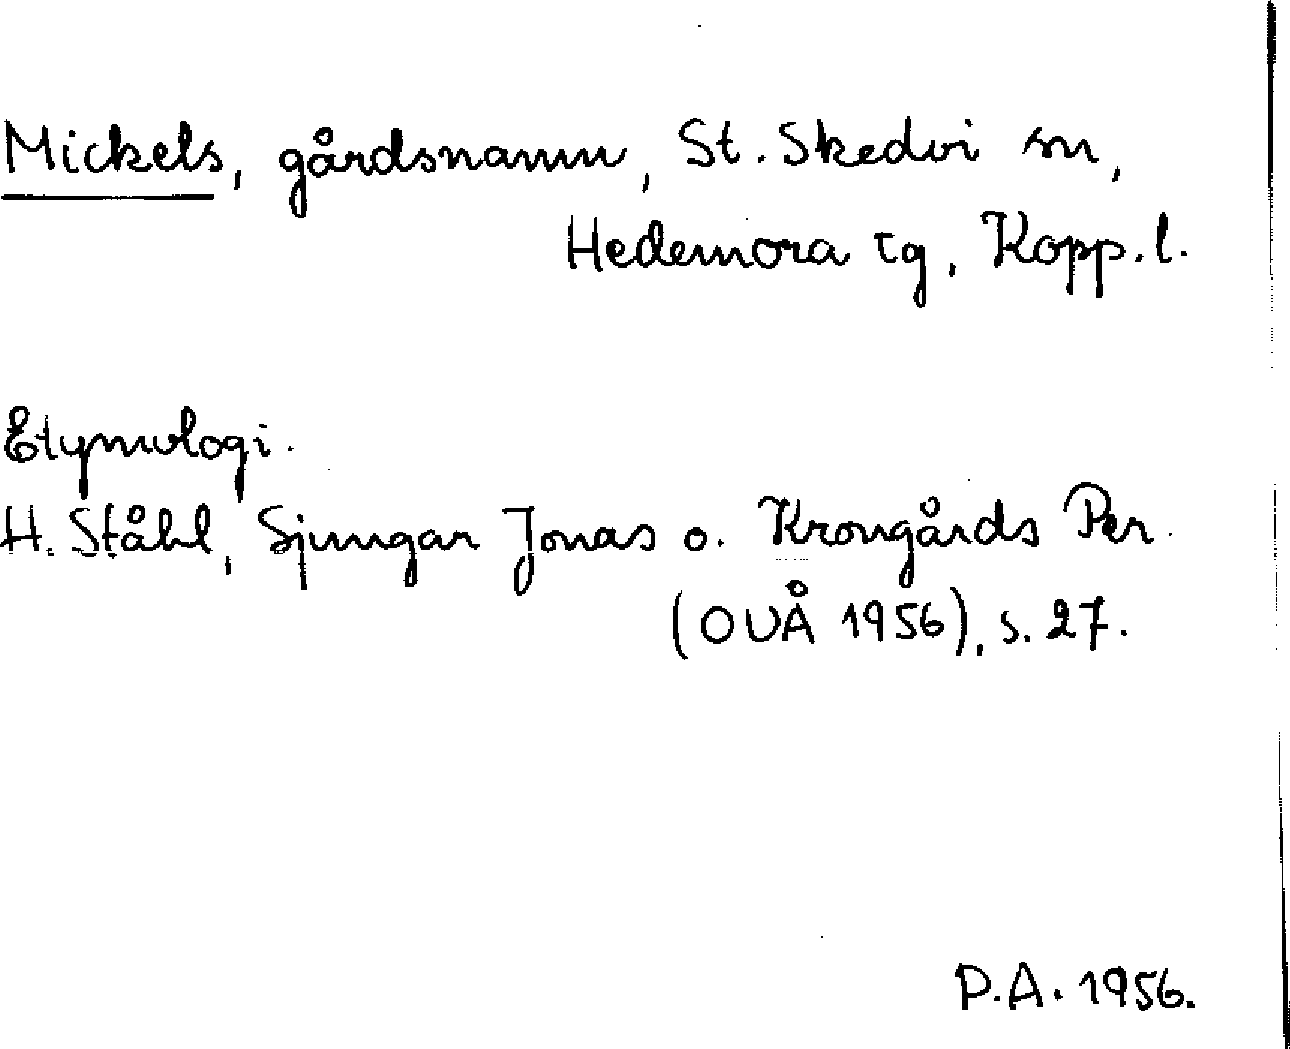 Mickels, gårdsnamn, St. Skedvi sn,
Hedemora tg, Kopp. l.
Etymologi.
H. Ståhl, Sjungar Jonas o. Krongårds Per.
(OUÅ 1956), s. 27.
P.A. 1956.